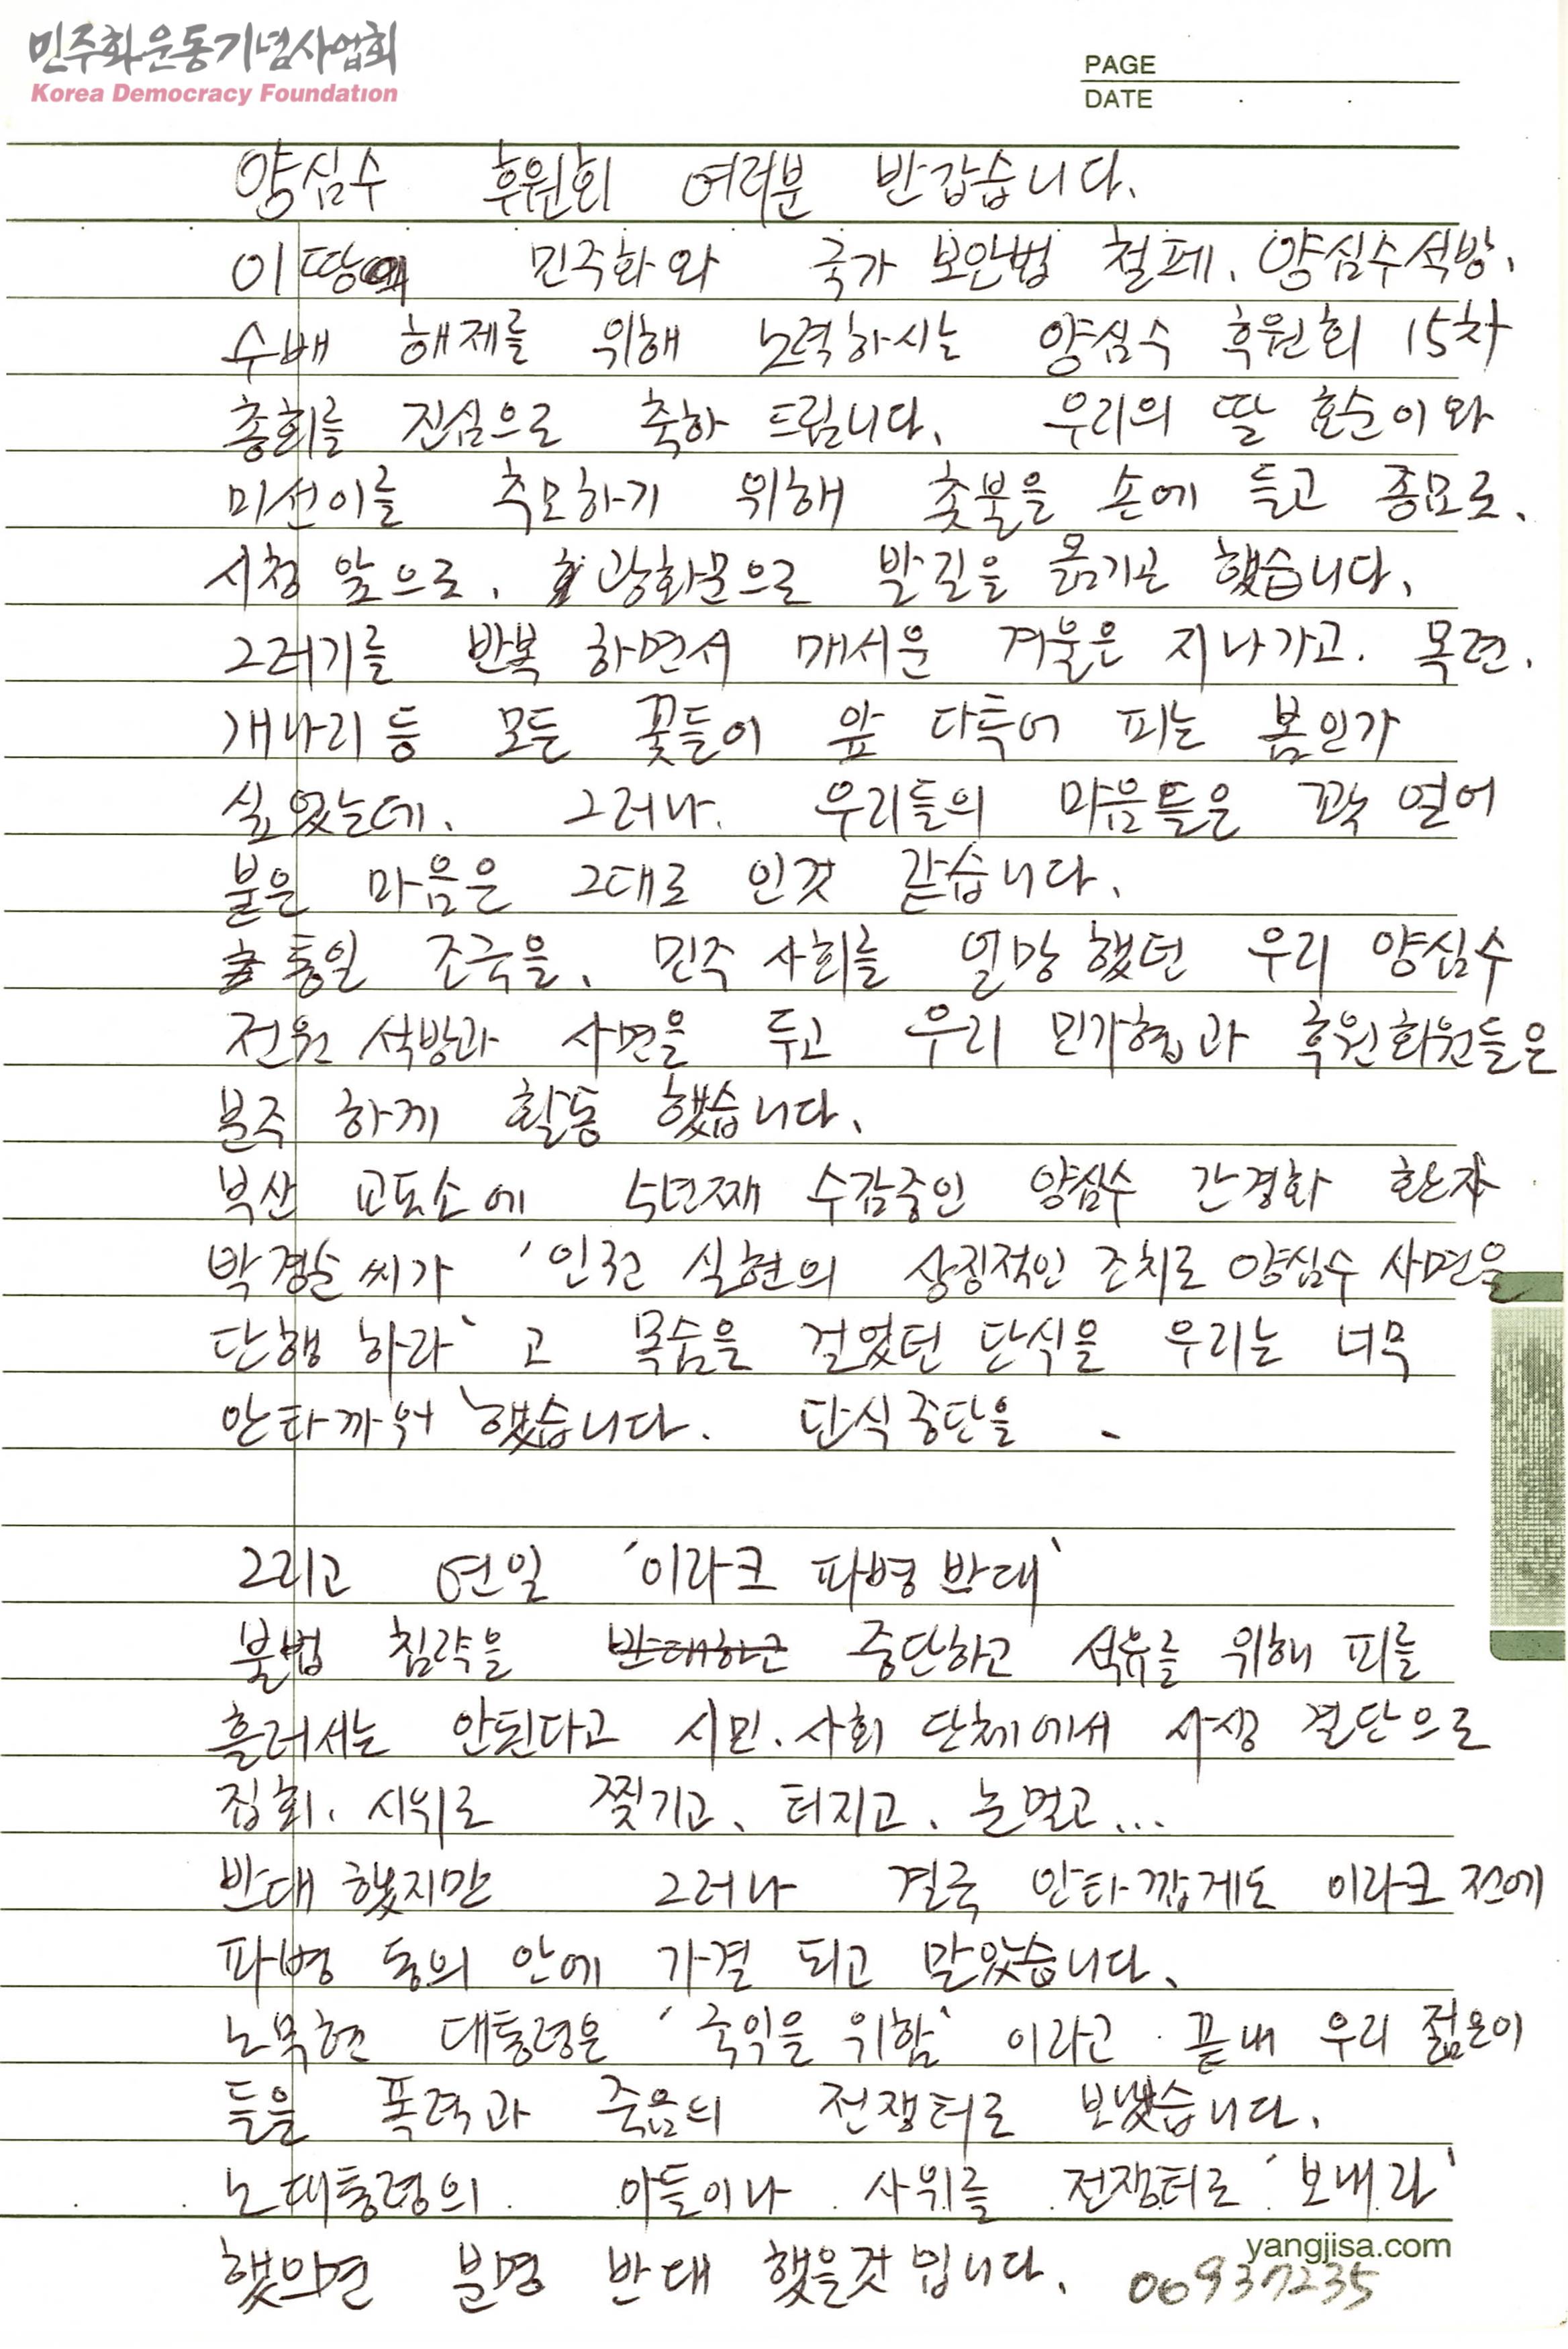 민주화운동기념사업회
Korea Democracy Foundation
PAGE
DATE
양심수 후원회 여러분 반갑습니다.
이땅의 민주화와 국가 보안법 철페, 양심수석방,
수배 해제를 위해 노력하시는 양심수 후원회 15차
총회를 진심으로 축하 드립니다. 우리의 딸 효순이와
미선이를 추모하기 위해 촛불을 손에 들고 종묘로,
시청 앞으로, 광화문으로 발길을 옮기곤 했습니다.
그러기를 반복 하면서 매서운 겨울은 지나가고, 목련,
개나리 등 모든 꽃들이 앞 다투어 피는 봄인가
싶었는데, 그러나, 우리들의 마음들은 꽉 얼어
붙은 마음은 그대로 인것 같습니다.
통일 조국을, 민주 사회를 열망 했던 우리 양심수
전원 석방과 사면을 두고 우리 민가협과 후원회원들은
분주 하게 활동 했습니다.
부산 교도소에 5년째 수감중인 양심수 간경화 환자
박경순씨가 '인권 실현의 상징적인 조치로 양심수 사면을
단행 하라' 고 목숨을 걸었던 단식을 우리는 너무
안타까워 했습니다. 단식중단을
그리고 연일 '이라크 파병 반대'
불법 침략을 반대하고 중단하고 석유를 위해 피를
흘려서는 안된다고 시민.사회 단체에서 사생 결단으로
집회, 시위로 찢기고, 터지고, 눈멀고...
반대 했지만 그러나 결국 안타깝게도 이라크 전에
파병 동의 안에 가결 되고 말았습니다.
노무현 대통령은 '국익을 위함' 이라고 끝내 우리 젊은이
들을 폭력과 죽음의 전쟁터로 보냈습니다.
노대통령의 아들이나 사위를 전쟁터로 '보내라'
했으면 분명 반대 했을것 입니다.
yangjisa.com
00937235